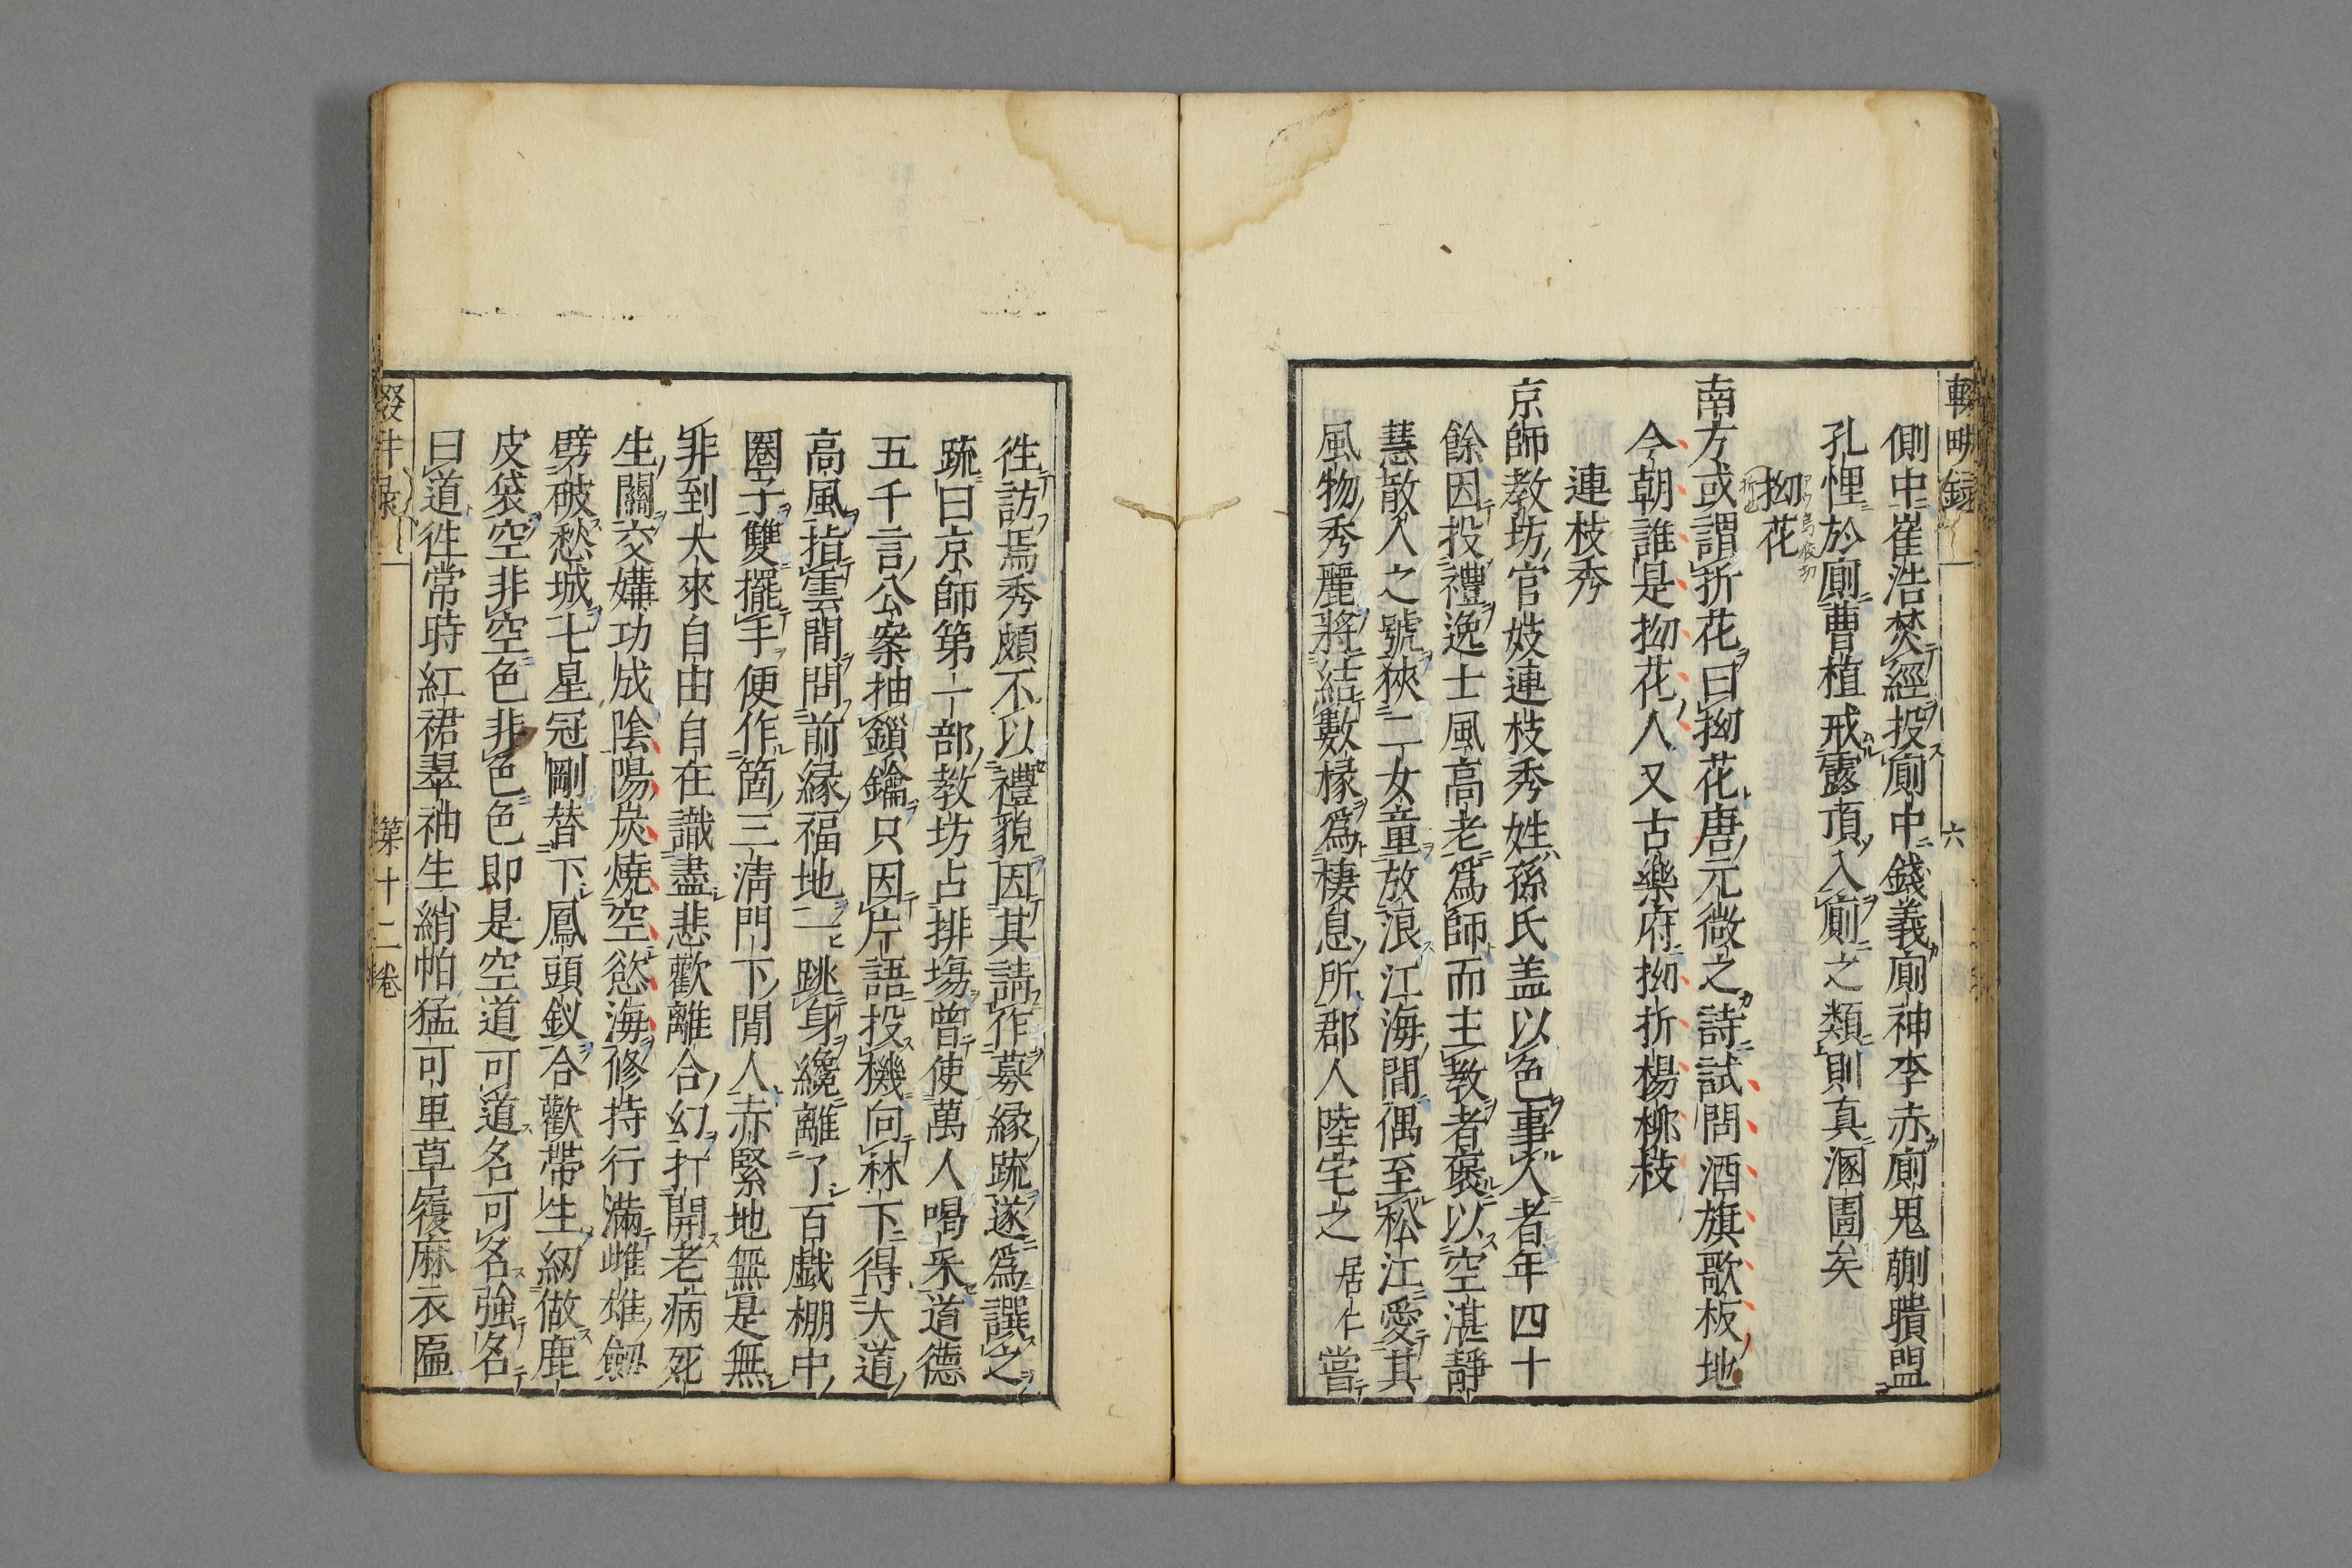 輟畊録
六
側中崔浩焚經投廁中錢義廁神李赤廁鬼蒯聵盟
孔悝於廁曹植戒露頂入廁之類則真溷圊矣
拗花
南方或謂折花曰拗花唐元微之詩試問酒旗歌板地
今朝誰是拗花人又古樂府拗折楊柳枝
連枝秀
京師教坊官妓連枝秀姓孫氏盖以色事人者年四十
餘因投禮逸士風高老爲師而主教者褒以空湛靜
慧散人之號狹二女童放浪江海間偶至松江愛其
風物秀麗將結數椽爲棲息所郡人陸宅之居仁嘗
徃訪焉秀頗不以禮貌因其請作募縁䟽遂爲譔之
䟽曰京師第一部教坊占排場曾使萬人喝采道德
五千言公案抽鎖鑰只因片語投機向林下得大道
高風指雲間問前縁福地一跳身纔離了百戲棚中
圈子雙擺手便作箇三淸門下閒人赤緊地無是無
非到大來自由自在識盡悲歡離合幻打開老病死
生關交媾功成陰陽炭燒空慾海修持行滿雌雄劔
劈破愁城七星冠剛替下鳳頭釵合歡帶生紉做鹿
皮袋空非空色非色色即是空道可道名可名強名
曰道徃常時紅裙翠袖生綃帕猛可里草履麻衣匾
輟畊録
第十二卷